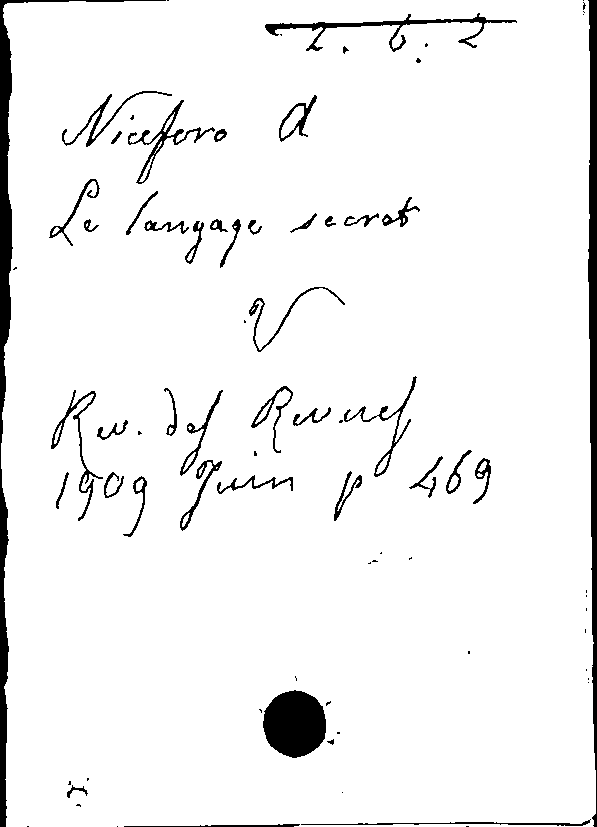 2. 6. 2
Niceforo A
Le langage secret
V
Rev. des Revues
1909 Juin p 469